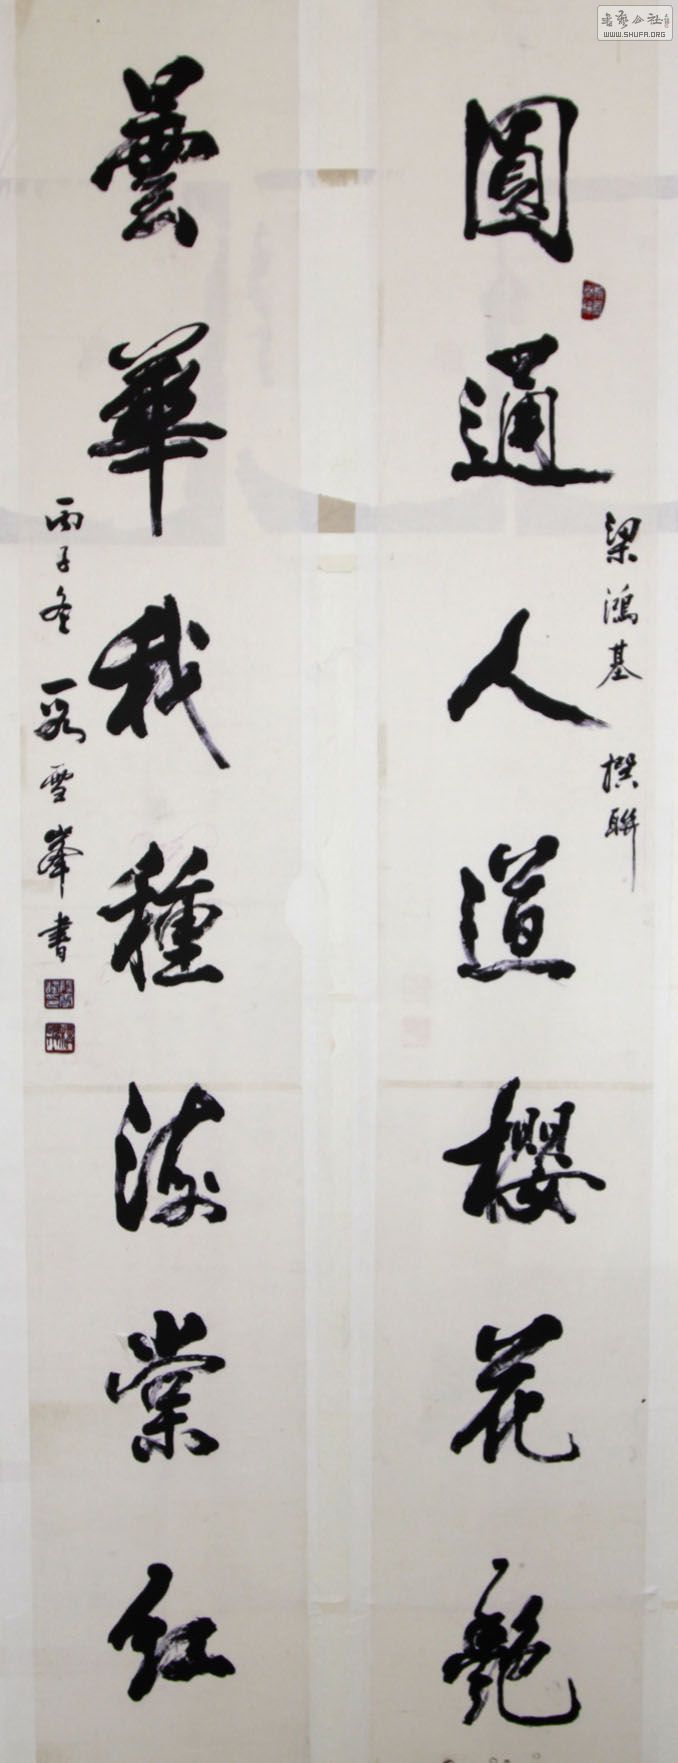 圓通人道櫻花艷
梁鴻基 撰聯
曇華我種海棠紅
丙子冬 段雪峯書
WWW.SHUFA.ORG